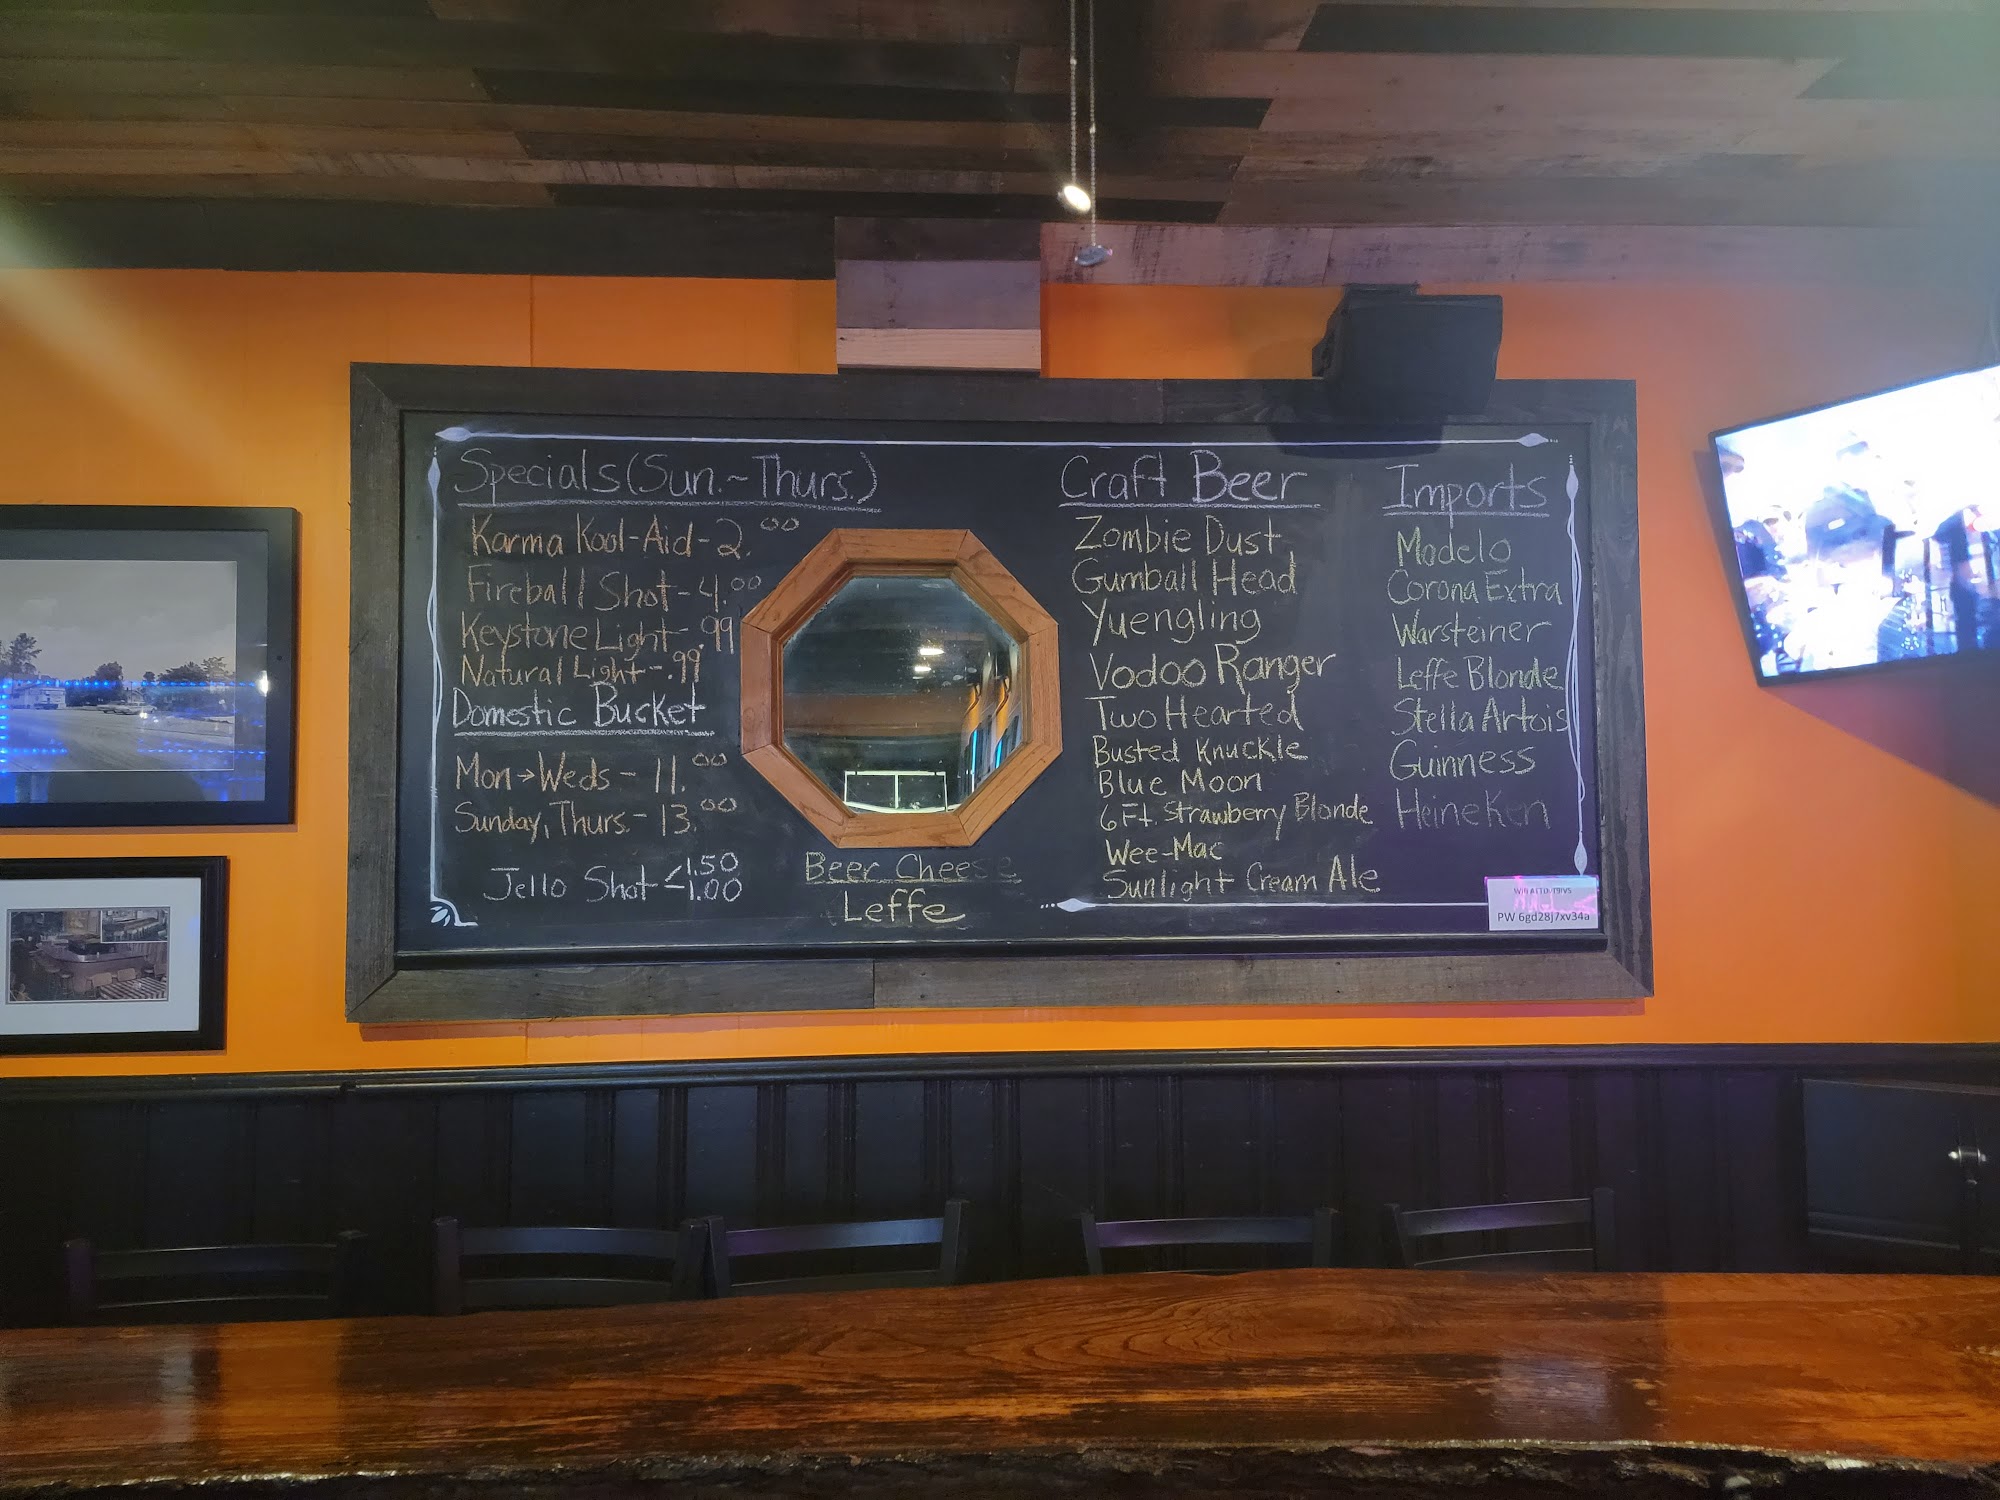 Specials (Sun.~Thurs.)
Karma Kool-Aid - 2.00
Fireball Shot - 4.00
Keystone Light - .99
Natural Light - .99
Domestic Bucket
Mon→Weds - 11.00
Sunday, Thurs. - 13.00
Jello Shot < 1.50
- 1.00
Beer Cheese
Leffe
Craft Beer
Zombie Dust
Gumball Head
Yuengling
Vodoo Ranger
Two Hearted
Busted Knuckle
Blue Moon
6 Ft. Strawberry Blonde
Wee-Mac
Sunlight Cream Ale
Imports
Modelo
Corona Extra
Warsteiner
Leffe Blonde
Stella Artois
Guinness
Heineken
PW 6gd28j7xv34a